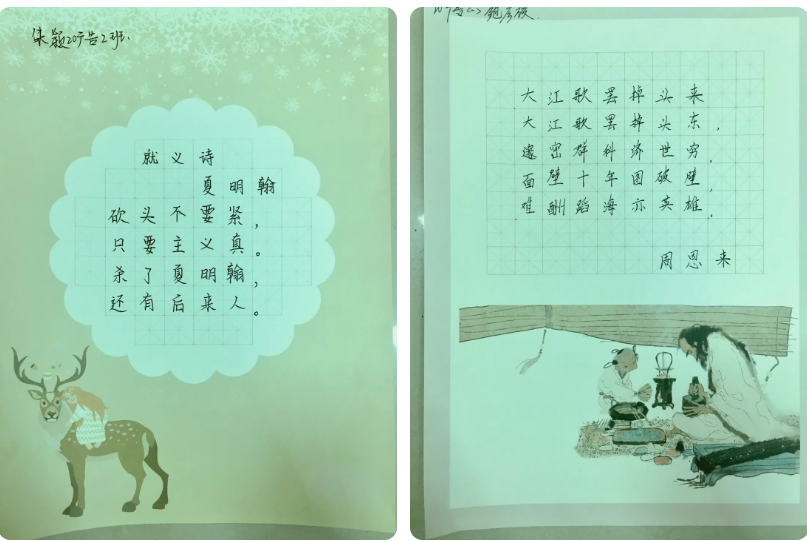 20广告2班.
就义诗
夏明翰
砍头不要紧，
只要主义真。
杀了夏明翰，
还有后来人。
大江歌罢掉头来
大江歌罢掉头东，
邃密群科济世穷，
面壁十年图破壁，
难酬蹈海亦英雄，
周恩来